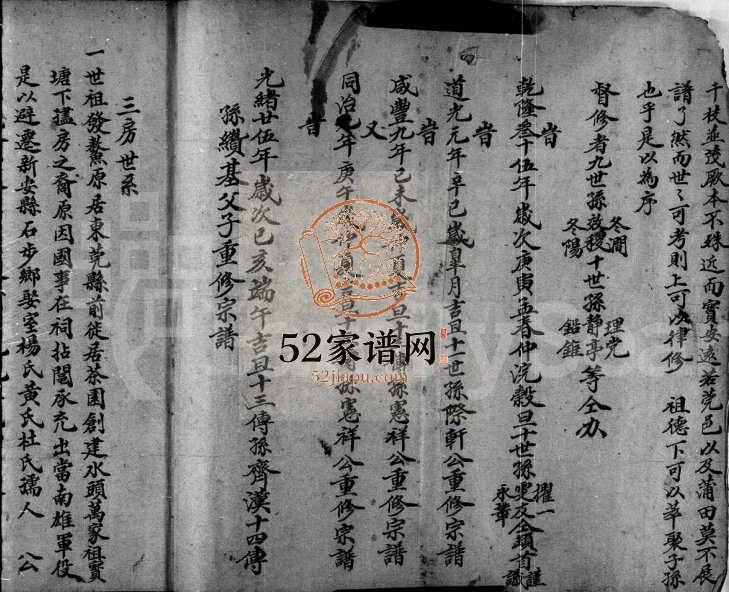 千枝並茂厥本不殊近而寶安遠若莞邑以及蒲田莫不展
譜了然而世々可考則上可以律修 祖德下可以萃聚子孫
也乎是以為序
督修者九世孫效稷 冬澗 冬陽 十世孫靜亭 理完 鉛錐 等仝办
旹
乾隆叁十伍年歲次庚寅孟春仲浣穀旦十世孫 擢一 雯及 永華 仝頓首 謹識
旹
道光元年辛巳歲臯月吉旦十一世孫際軒公重修宗譜
旹
咸豐九年己未 夏吉旦十 孫憲祥公重修宗譜
又
同治 年庚午歲 夏 孫憲祥公重修宗譜
旹
光緒廿伍年歲次己亥端午吉旦十三傳孫齊漢十四傳
孫纘基父子重修宗譜
三房世系
一世祖發鰲原居東莞縣前徙居茶園創建水頭萬家祖實
塘下 房之裔原因國事在祠拈鬮承充出當南雄軍役
是以避遷新安縣石步鄉娶室楊氏黃氏杜氏孺人 公
52家谱网
52jiapu.com